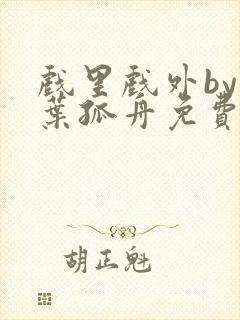 戏里戏外by
葉孤舟免費
胡正魁